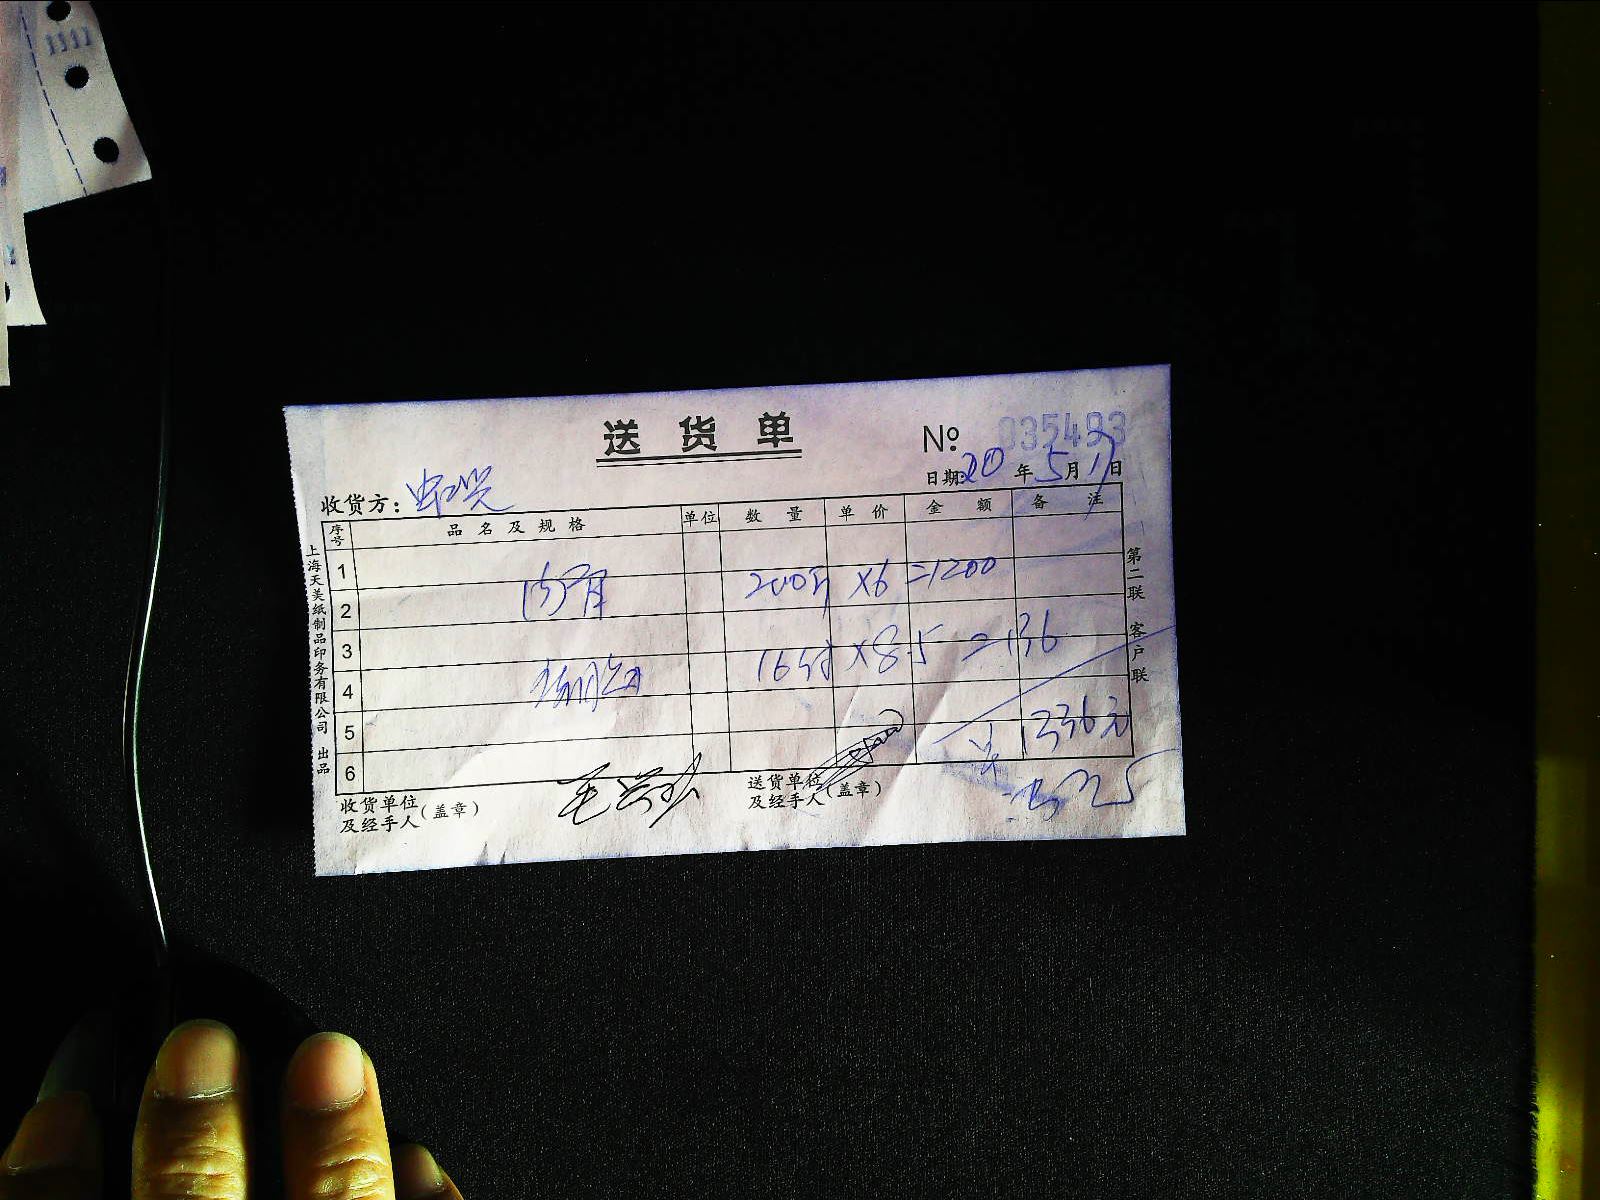 送货单
№ 035493
日期:20年5月17日
收货方:
序号 品名及规格 单位 数量 单价 金额 备注
1
2 200斤 ×6 =1200
3
4 16斤 ×8.5 =136
5
6 1336元
收货单位及经手人(盖章)
送货单位及经手人(盖章)
上海天美纸制品印务有限公司 出品
第二联 客户联